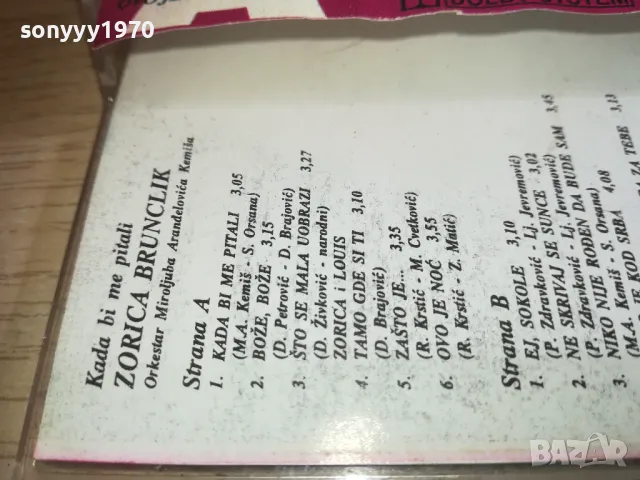 sonyyy1970
Kada bi me pitali
ZORICA BRUNCLIK
Orkestar Miroljuba Aranđelovića Kemiša
Strana A
1. KADA BI ME PITALI 3,05
(M.A. Kemiš - S. Orsana)
2. BOŽE, BOŽE 3,15
(D. Petrović - D. Brajović)
3. ŠTO SE MALA UOBRAZI 3,27
(D. Živković - narodni)
ZORICA i LOUIS
4. TAMO GDE SI TI 3,10
(D. Brajović)
5. ZAŠTO JE... 3,35
(R. Krstić - M. Cvetković)
6. OVO JE NOĆ 3,55
(R. Krstić - Z. Matić)
Strana B
1. EJ, SOKOLE 3,10
(P. Zdravković - Lj. Jevremović)
2. NE SKRIVAJ SE SUNCE 3,02
(P. Zdravković - Lj. Jevremović)
3. NIKO NIJE ROĐEN DA BUDE SAM 3,45
(M.A. Kemiš - S. Orsana)
SE KOD SRBA 4,08
ZA TEBE 3,13
BAZAR